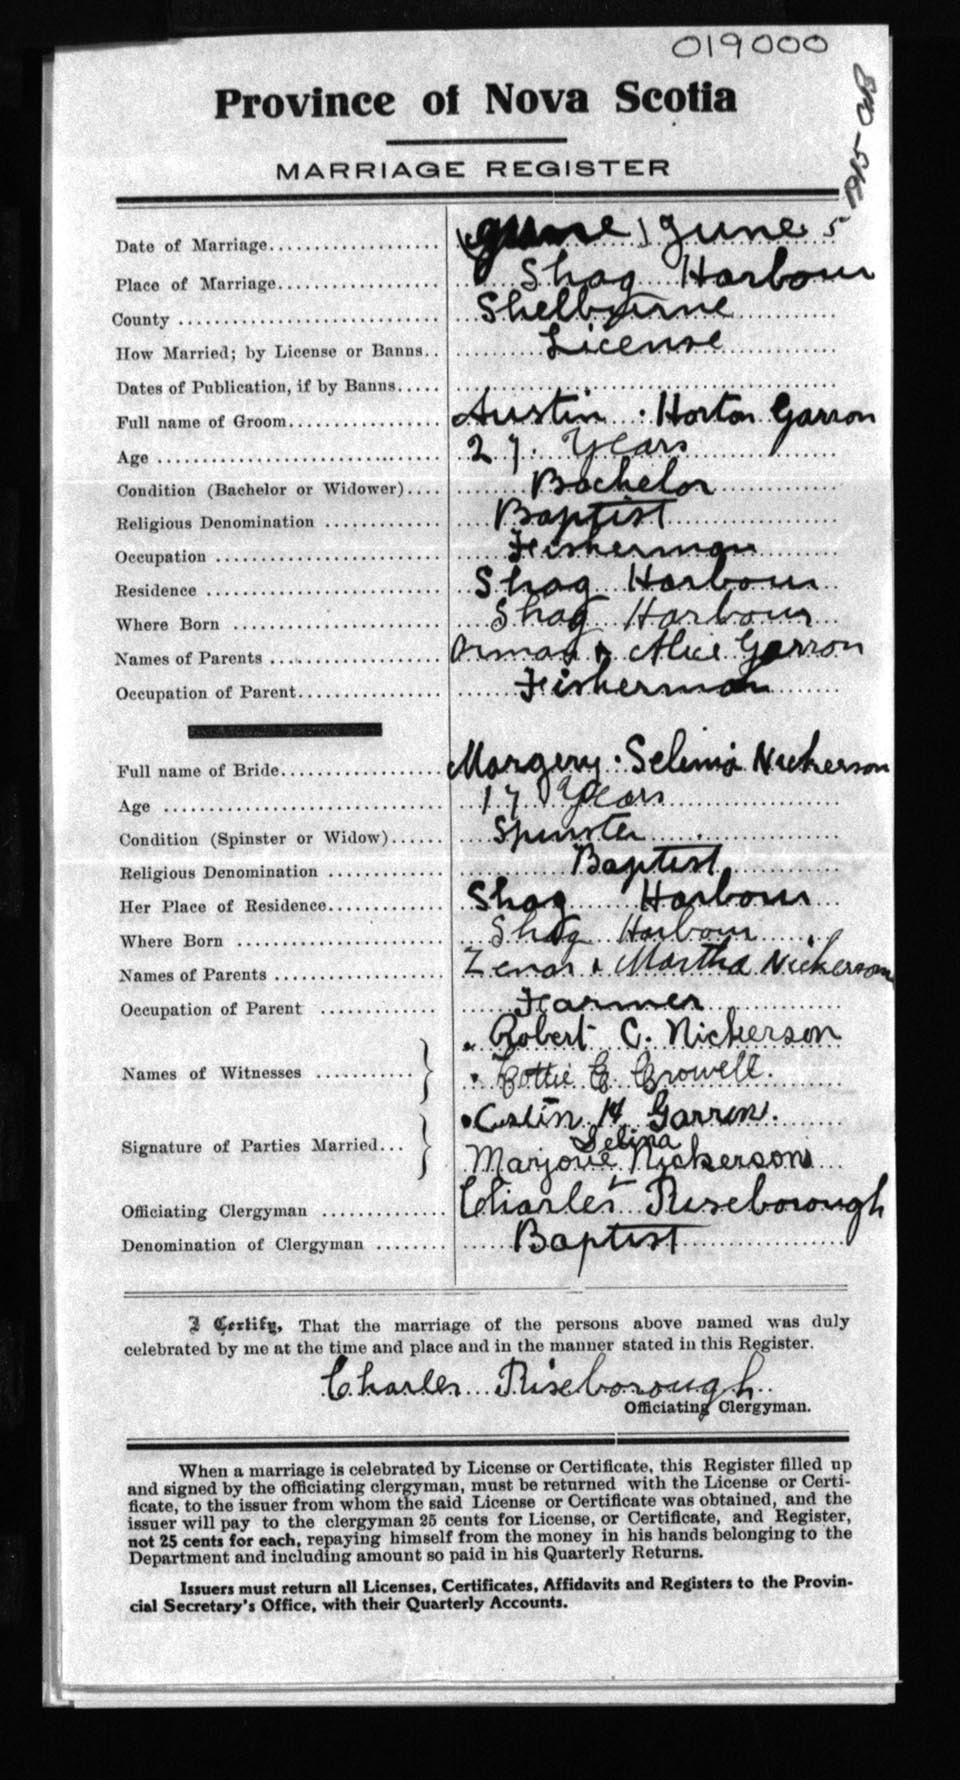 019000
Province of Nova Scotia
MARRIAGE REGISTER
Date of Marriage (June) June 5
Place of Marriage Shag Harbour
County Shelburne
How Married; by License or Banns License
Dates of Publication, if by Banns
Full name of Groom Austin Horton Garron
Age 27 Years
Condition (Bachelor or Widower) Bachelor
Religious Denomination Baptist
Occupation Fisherman
Residence Shag Harbour
Where Born Shag Harbour
Names of Parents & Alice Garron
Occupation of Parent Fisherman
Full name of Bride Margery Selinia Nickerson
Age 17 Years
Condition (Spinster or Widow) Spinster
Religious Denomination Baptist
Her Place of Residence Shag Harbour
Where Born Shag Harbour
Names of Parents Zenas & Martha Nickerson
Occupation of Parent Farmer
Robert C. Nickerson
Names of Witnesses
Lottie E Crowell.
H Garron.
Signature of Parties Married
Selina
Marjorie Nickerson
Officiating Clergyman Charles Riseborough
Denomination of Clergyman Baptist
I Certify, That the marriage of the persons above named was duly
celebrated by me at the time and place and in the manner stated in this Register.
Charles Riseborough
Officiating Clergyman.
When a marriage is celebrated by License or Certificate, this Register filled up
and signed by the officiating clergyman, must be returned with the License or Certi-
ficate, to the issuer from whom the said License or Certificate was obtained, and the
issuer will pay to the clergyman 25 cents for License, or Certificate, and Register,
not 25 cents for each, repaying himself from the money in his hands belonging to the
Department and including amount so paid in his Quarterly Returns.
Issuers must return all Licenses, Certificates, Affidavits and Registers to the Provin-
cial Secretary's Office, with their Quarterly Accounts.